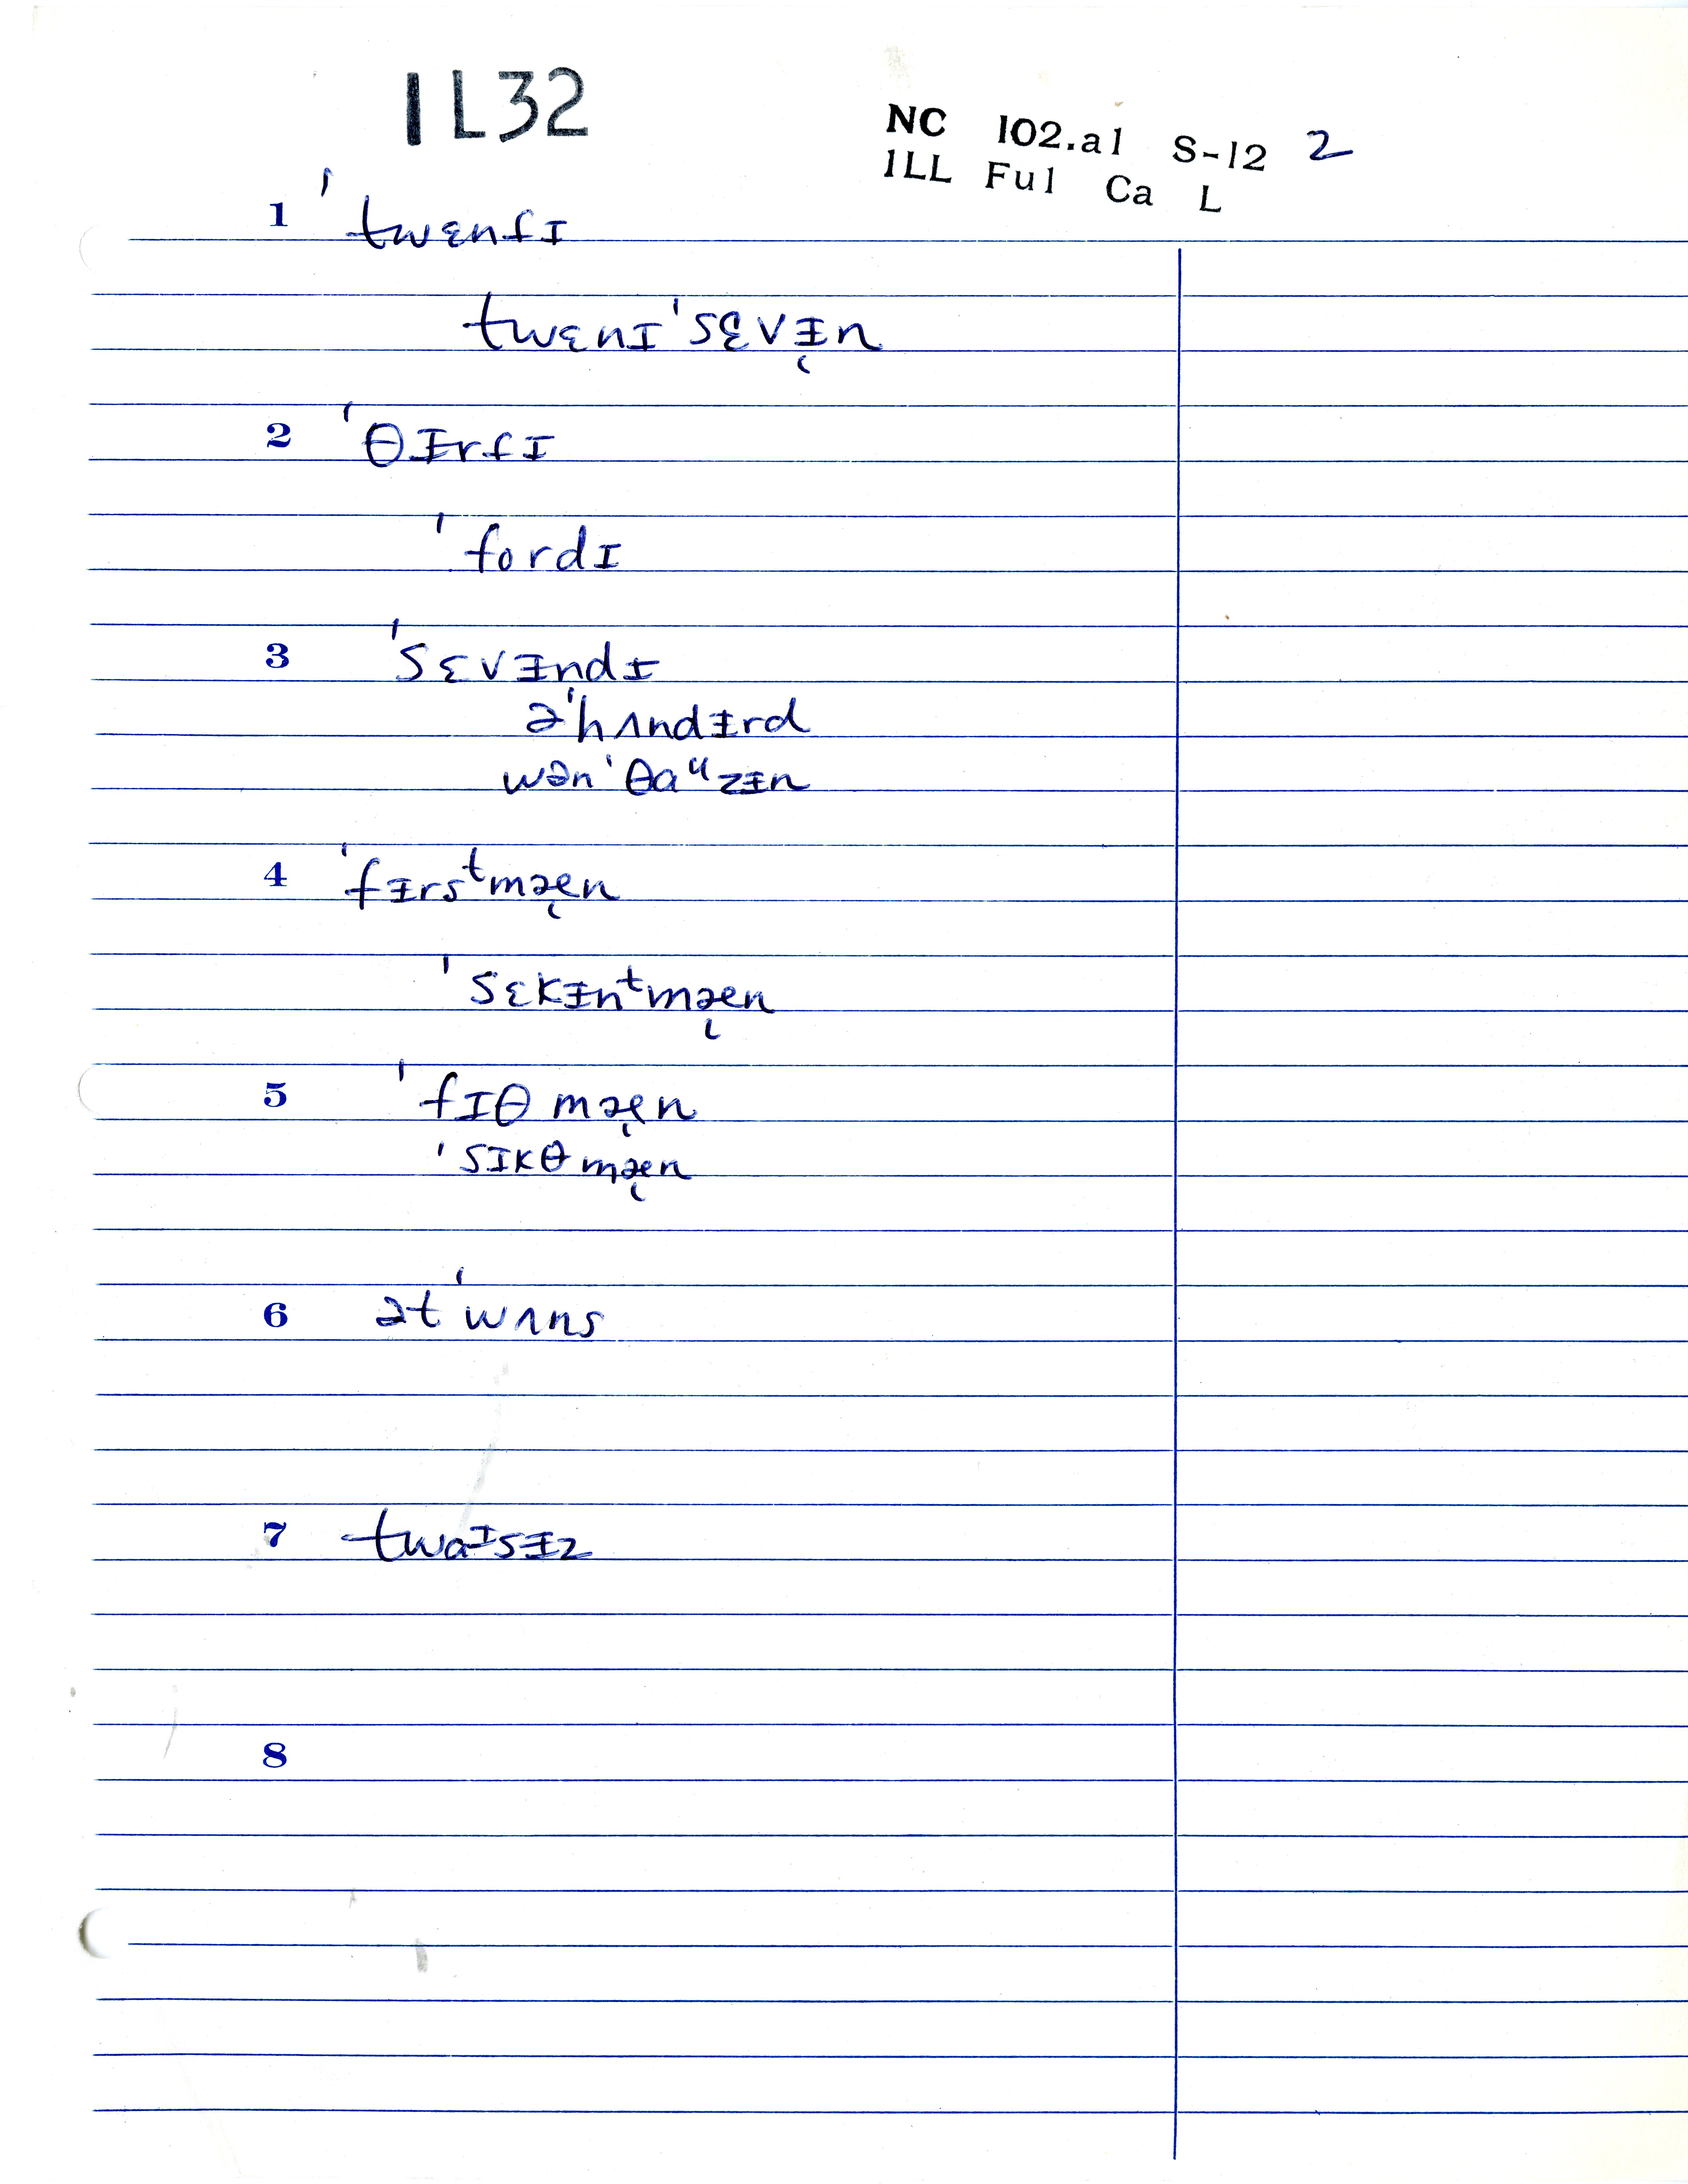 IL32
NC 102.a1 S-12 2
ILL Ful Ca L
1 ˈtwɛnɾɪ
twɛnɪˈsɛvɨ̞n
2 ˈθɨrɾɪ
ˈfordɪ
3 ˈsɛvɨndɪ
əˈhʌndɨrd
wənˈθaᶸzɨn
4 ˈfɨrsᵗmæ̨n
ˈsɛkɨnᵗmæ̨n
5 ˈfɪθmæ̨n
ˈsɪkθmæ̨n
6 ətˈwʌns
7 twaᶦsɨz
8